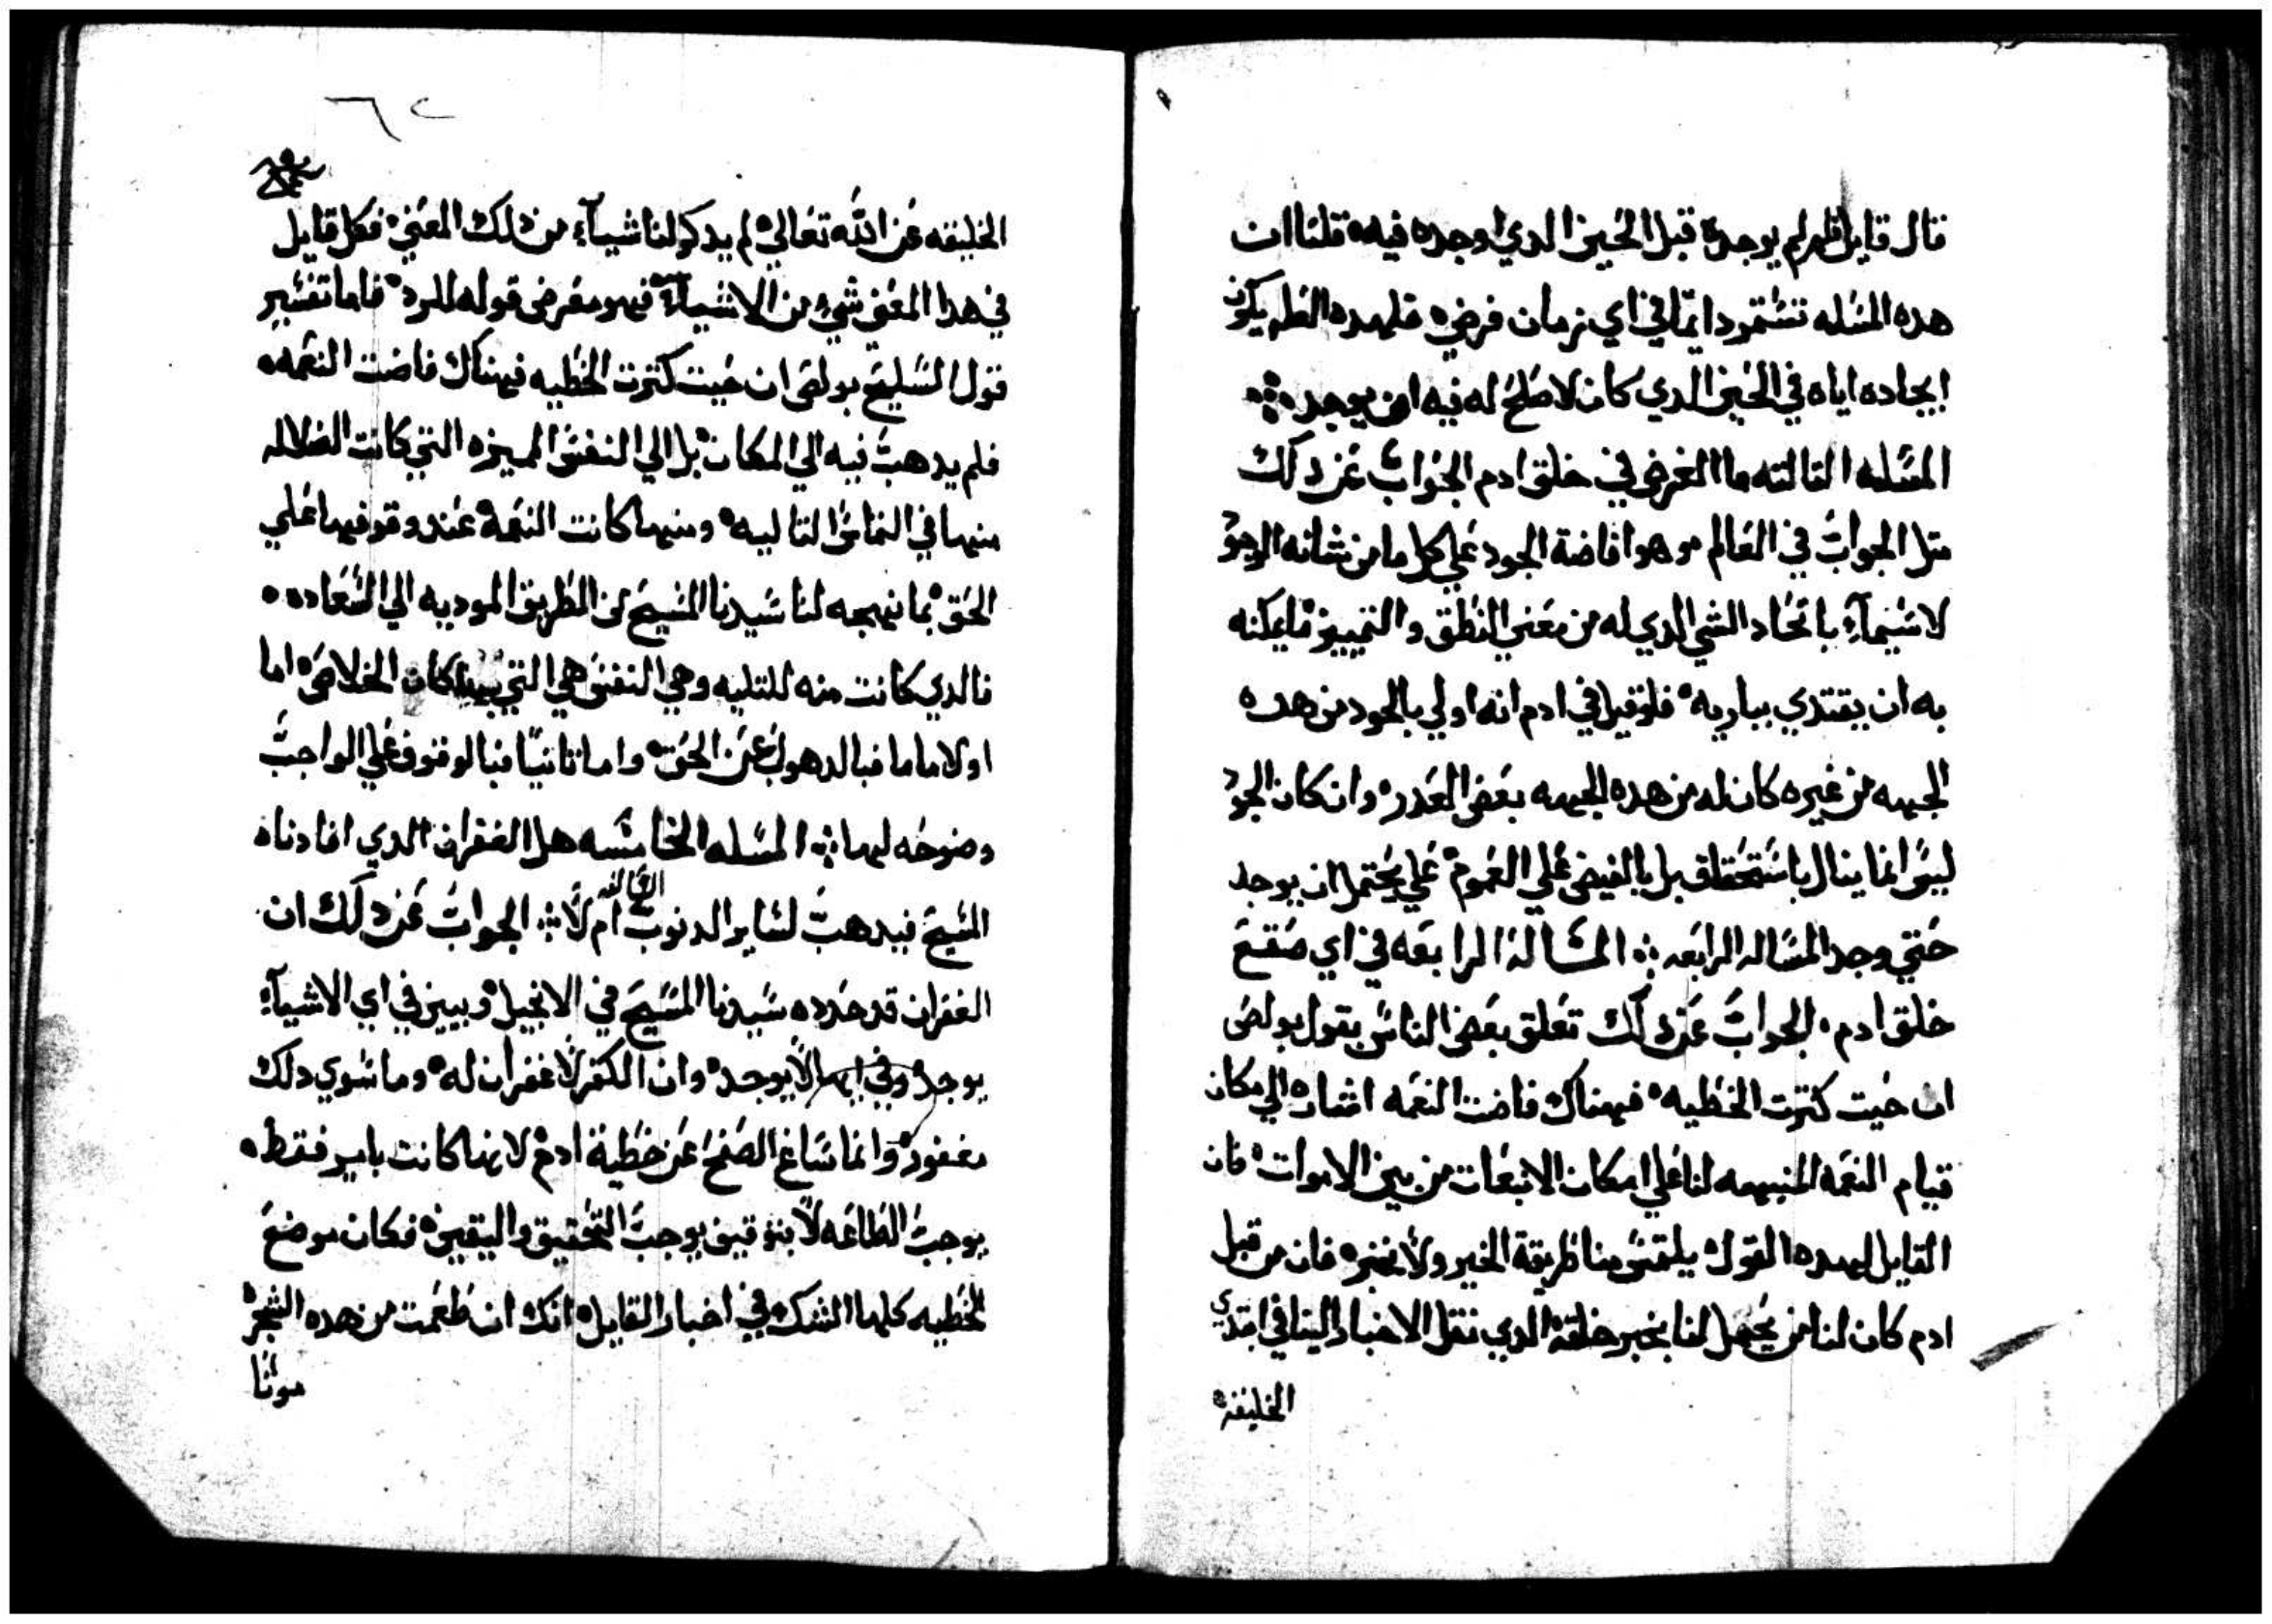 قال قايل فلم لم يوجده قبل الحين الدي اوجده فيه قلنا ان
هده المسله تستمر دايما في اي زمان فرض فلهده العله يكون
ايجاده اياه في الحين الدي كان لاصلح له فيه ان يوجد
المسله التالته ما الغرض في خلق ادم الجواب عن دلك
متل الجواب في العالم وهو افاضة الجود علي كل ما من شانه الوجود
لاسيما باتحاد الشي الدي له من معني النطق والتمييز ما يمكنه
به ان يقتدي بباريه فلو قيل في ادم انه اولي بالجود من هده
الجهه من غيره كان له من هده الجهه بعض العدر وان كان الجود
ليس انما ينال باستحقاق بل بالفيض علي العموم علي يحتمل ان يوجد
حتي وجد المساله الرابعه المسالة الرابعه في اي صقع
خلق ادم الجواب عن دلك تعلق بعض الناس بقول بولص
ان حيت كترت الخطيه فهناك فاضت النعمه اشاره الي مكان
قيام النعمه المنبهه لنا علي امكان الانبعات من بين الاموات فان
القايل لهده القول يلتمس منا طريقة الخبر ولا يخبر فان من قبل
ادم كان لنا من يحمل لنا بخبر خلقة الدي نقل الاخبار الينا في ابتدي
الخليقة
٦٢
الخليقه عن الله تعالي لم يدكر لنا شيآء من دلك المعني فكل قايل
في هدا المعني شي من الاشيآء فهو معرض قوله للرد فاما تفسير
قول السليح بولص ان حيت كترت الخطيه فهناك فاضت النعمه
فلم يدهب فيه الي المكان بل الي النفس المميزه التي كانت الضلاله
منها في التماس التاليه ومنها كانت النعمة عند وقوفها علي
الحق بما نهجه لنا سيدنا المسيح من الطريق الموديه الي السعاده
فالدي كانت منه للتليه وهي النفس هي التي بها كان الخلاص اما
اولا ماما فبالدهول عن الحق واما تانيا فبالوقوف علي الواجب
وضوحه لها المسله الخامسه هل الغفران الدي افادناه
المسيح فيدهب لساير الدنوب السالفه ام لا الجواب عن دلك ان
الغفران قد حدده سيدنا المسيح في الانجيل وبين في اي الاشيآء
يوجد وفي ايها لا يوجد وان الكفر لا غفران له وما سوي دلك
مغفور وانما ساغ الصفح عن خطية ادم لانها كانت بامر فقط
يوجب الطاعه لا بتوقيف يوجب التحقيق واليقين فكان موضع
الخطيه كلها الشك في اخبار القايل انك ان طعمت من هده الشجرة
موتا